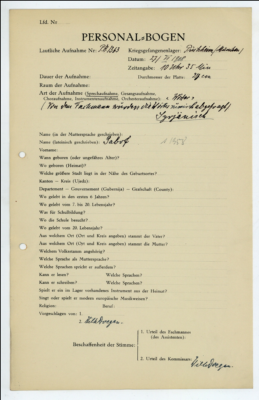 Lfd. Nr.
PERSONAL-BOGEN
Lautliche Aufnahme Nr.: PK 1263
Kriegsgefangenenlager:
Datum:
Zeitangabe: 10 Uhr 35 Min
Dauer der Aufnahme:
Durchmesser der Platte: 27 cm
Raum der Aufnahme:
Art der Aufnahme (Sprechaufnahme, Gesangsaufnahme,
Choraufnahme, Instrumentenaufnahme, Orchesteraufnahme):
Syrjänisch
Name (in der Muttersprache geschrieben):
Name (lateinisch geschrieben):
Vorname:
Wann geboren (oder ungefähres Alter)?
Wo geboren (Heimat)?
Welche größere Stadt liegt in der Nähe des Geburtsortes?
Kanton — Kreis (Ujedz):
Departement — Gouvernement (Gubernija) — Grafschaft (County):
Wo gelebt in den ersten 6 Jahren?
Wo gelebt vom 7. bis 20. Lebensjahr?
Was für Schulbildung?
Wo die Schule besucht?
Wo gelebt vom 20. Lebensjahr?
Aus welchem Ort (Ort und Kreis angeben) stammt der Vater?
Aus welchem Ort (Ort und Kreis angeben) stammt die Mutter?
Welchem Volksstamm angehörig?
Welche Sprache als Muttersprache?
Welche Sprachen spricht er außerdem?
Kann er lesen? Welche Sprachen?
Kann er schreiben? Welche Sprachen?
Spielt er ein im Lager vorhandenes Instrument aus der Heimat?
Singt oder spielt er modern europäische Musikweisen?
Religion: Beruf:
Vorgeschlagen von: 1.
2.
Beschaffenheit der Stimme:
1. Urteil des Fachmannes
(des Assistenten):
2. Urteil des Kommissars: